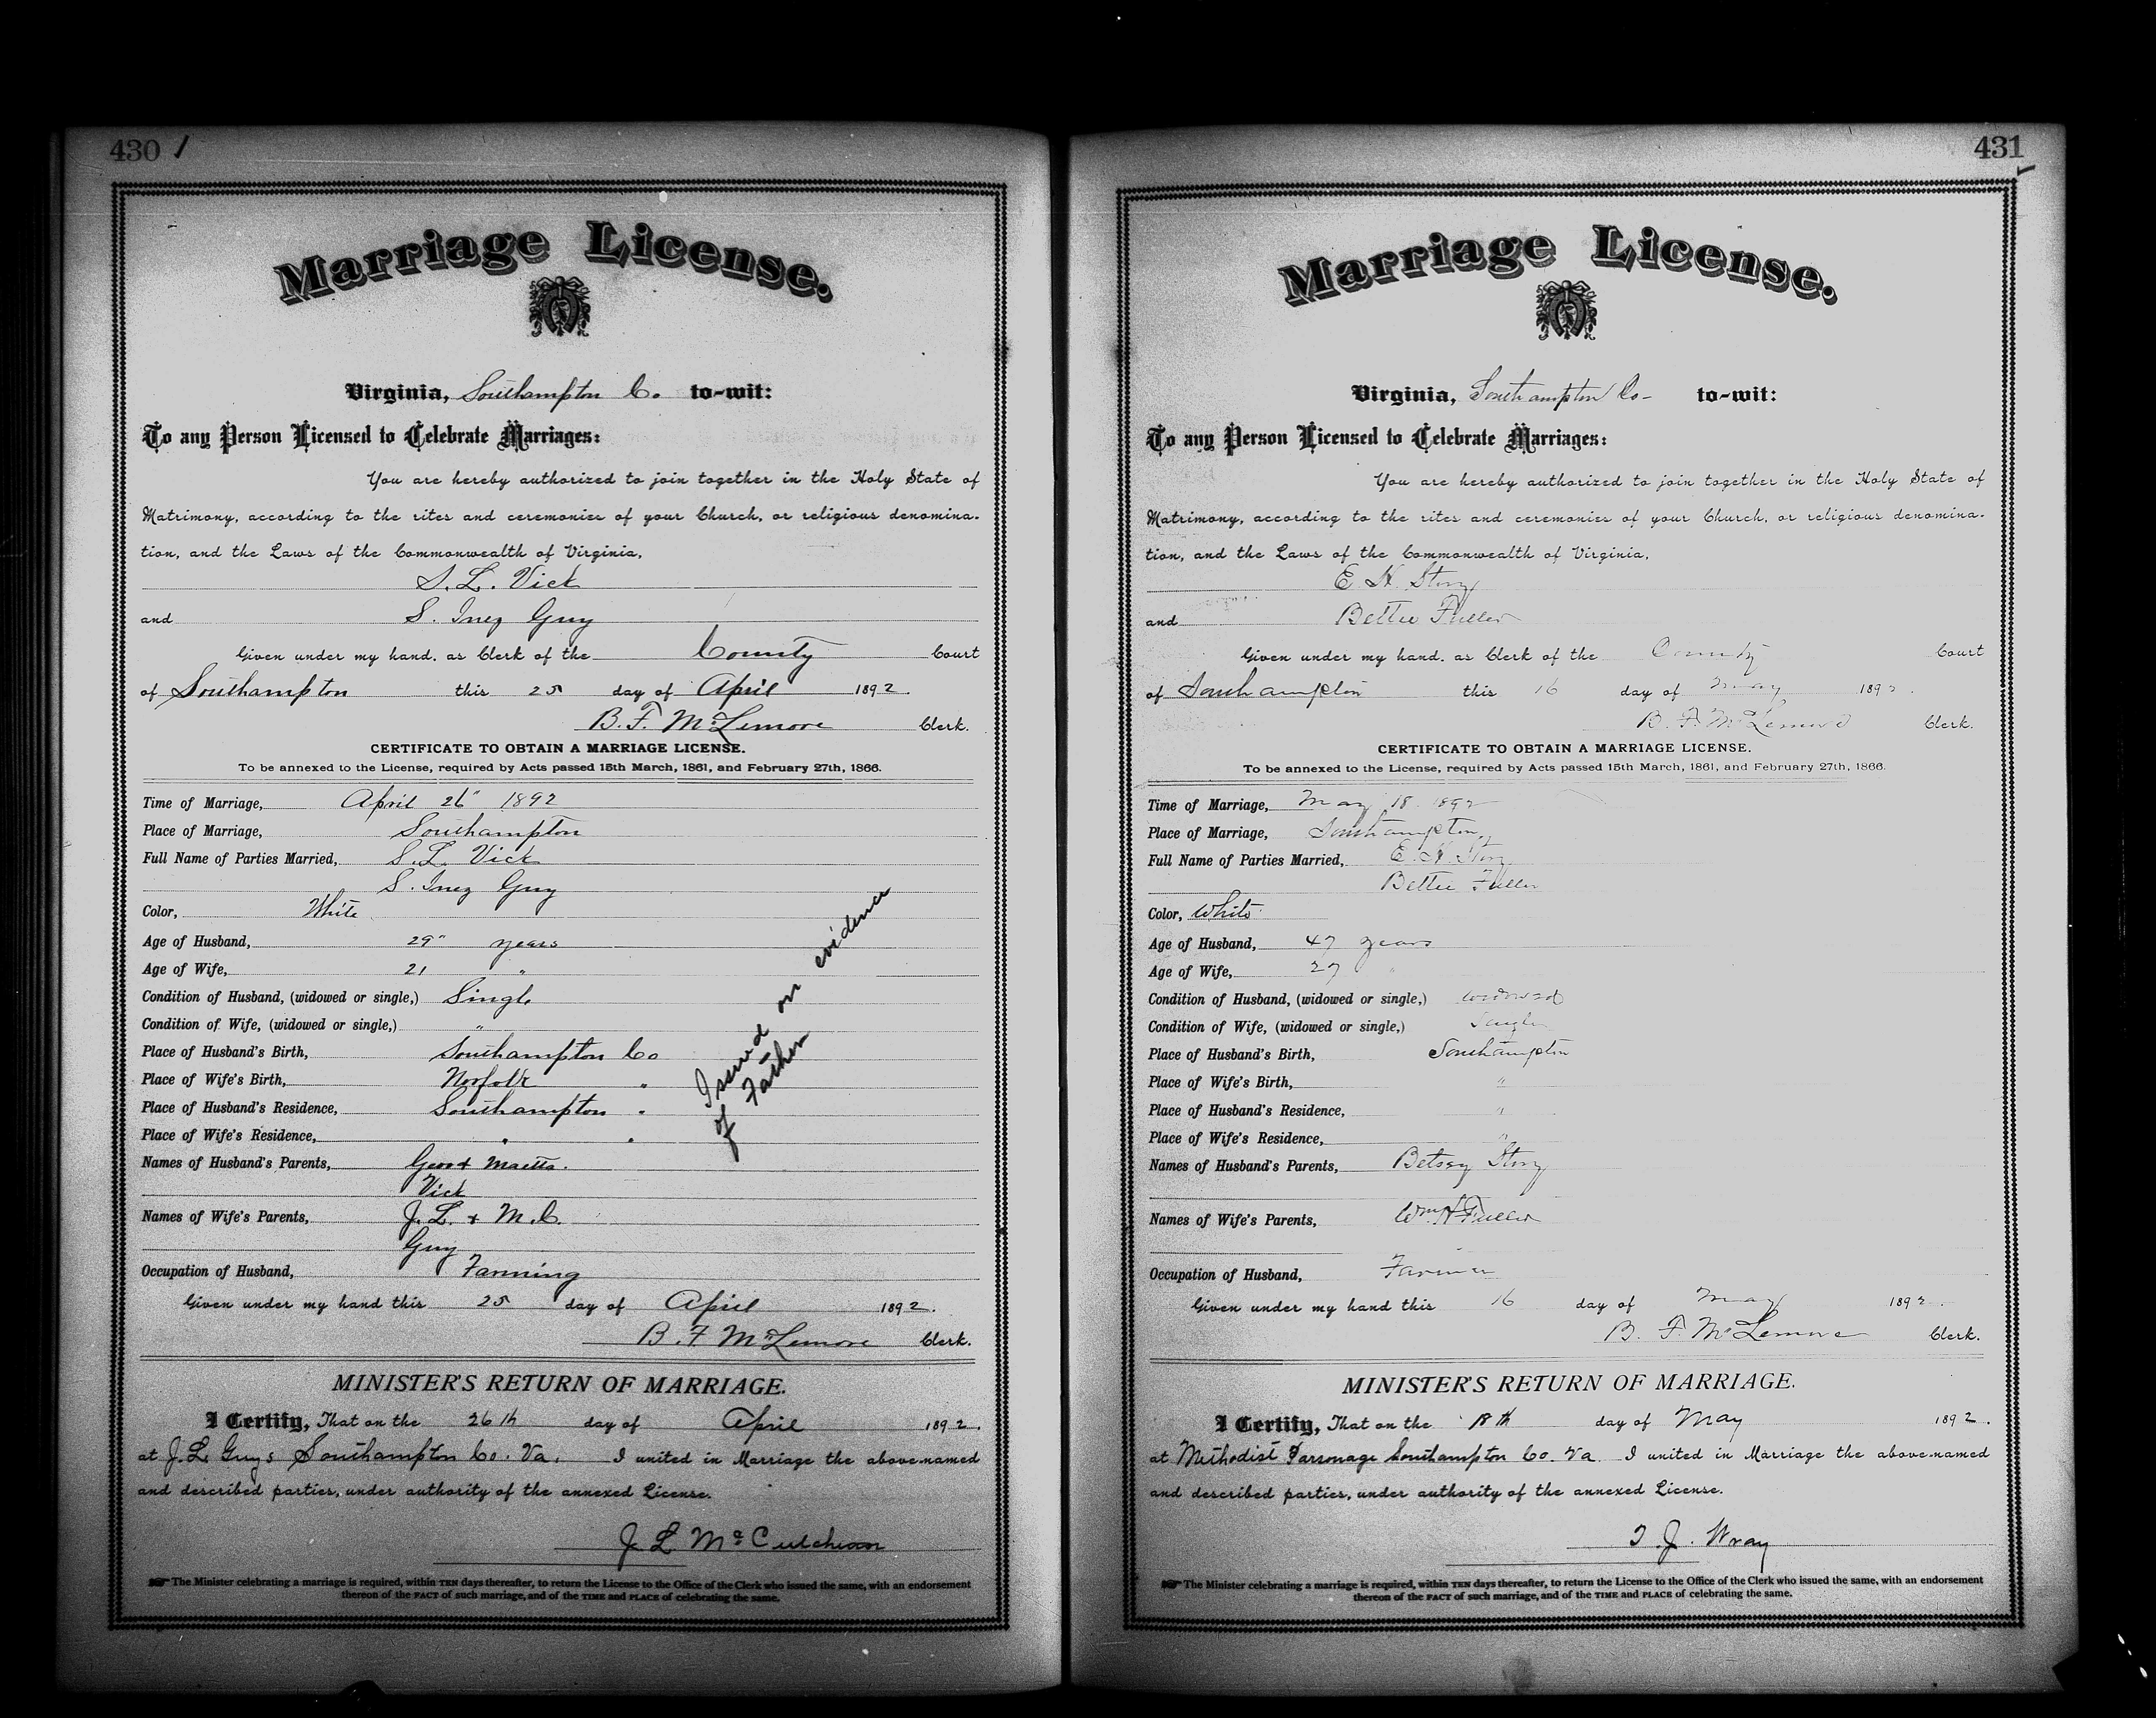 430
Marriage License.
Virginia, Southampton Co. to-wit:
To any Person Licensed to Celebrate Marriages:
You are hereby authorized to join together in the Holy State of
Matrimony, according to the rites and ceremonies of your Church, or religious denomina-
tion, and the Laws of the Commonwealth of Virginia,
S. L. Vick
and S. Inez Guy
Given under my hand, as Clerk of the County Court
of Southampton this 25 day of April 1892.
B. F. McLemore Clerk.
CERTIFICATE TO OBTAIN A MARRIAGE LICENSE.
To be annexed to the License, required by Acts passed 15th March, 1861, and February 27th, 1866.
Time of Marriage, April 26" 1892
Place of Marriage, Southampton
Full Name of Parties Married, S. L. Vick
S. Inez Guy
Color, White
Age of Husband, 29" years
Age of Wife, 21 "
Condition of Husband, (widowed or single,) Single
Condition of Wife, (widowed or single,) "
Place of Husband's Birth, Southampton Co
Place of Wife's Birth, Norfolk "
Place of Husband's Residence, Southampton "
Place of Wife's Residence, " "
Names of Husband's Parents, Geo &
Vick
Names of Wife's Parents, J. L. & M. C.
Guy
Occupation of Husband, Farming
Issued on evidence
of Father
Given under my hand this 25 day of April 1892.
B. F McLemore Clerk.
MINISTER'S RETURN OF MARRIAGE.
I Certify, That on the 26th day of April 1892.
at J. L. Guys Southampton Co. Va. I united in Marriage the above-named
and described parties, under authority of the annexed License.
J. L. McCutcheon
The Minister celebrating a marriage is required, within TEN days thereafter, to return the License to the Office of the Clerk who issued the same, with an endorsement
thereon of the FACT of such marriage, and of the TIME and PLACE of celebrating the same.
431
Marriage License.
Virginia, Southampton Co- to-wit:
To any Person Licensed to Celebrate Marriages:
You are hereby authorized to join together in the Holy State of
Matrimony, according to the rites and ceremonies of your Church, or religious denomina-
tion, and the Laws of the Commonwealth of Virginia,
E. H. Story
and Bettie Fuller
Given under my hand, as Clerk of the County Court
of Southampton this 16 day of May 1892.
B. F. McLemore Clerk.
CERTIFICATE TO OBTAIN A MARRIAGE LICENSE.
To be annexed to the License, required by Acts passed 15th March, 1861, and February 27th, 1866.
Time of Marriage, May 18 1892
Place of Marriage, Southampton
Full Name of Parties Married, E. H. Story
Bettie Fuller
Color, White
Age of Husband, 47 years
Age of Wife, 27 "
Condition of Husband, (widowed or single,) widowed
Condition of Wife, (widowed or single,) Single
Place of Husband's Birth, Southampton
Place of Wife's Birth, "
Place of Husband's Residence, "
Place of Wife's Residence, "
Names of Husband's Parents, Betsey Story
Names of Wife's Parents, Wm H Fuller
Occupation of Husband, Farmer
Given under my hand this 16 day of May 1892.
B. F. McLemore Clerk.
MINISTER'S RETURN OF MARRIAGE.
I Certify, That on the 18th day of May 1892.
at Methodist Parsonage Southampton Co. Va. I united in Marriage the above-named
and described parties, under authority of the annexed License.
T. J. Wray
The Minister celebrating a marriage is required, within TEN days thereafter, to return the License to the Office of the Clerk who issued the same, with an endorsement
thereon of the FACT of such marriage, and of the TIME and PLACE of celebrating the same.